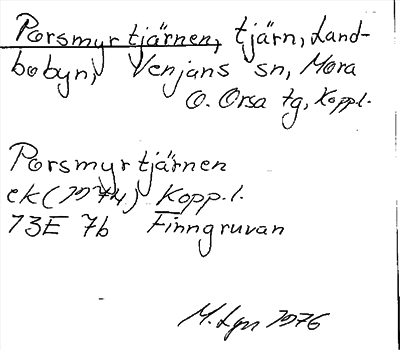 Porsmyrtjärnen, tjärn, Land-
bobyn, Venjans sn, Mora
o. Orsa tg, Koppl.
Porsmyrtjärnen
ek (1974) Kopp.l.
13E 7b Finngruvan
M. 1976